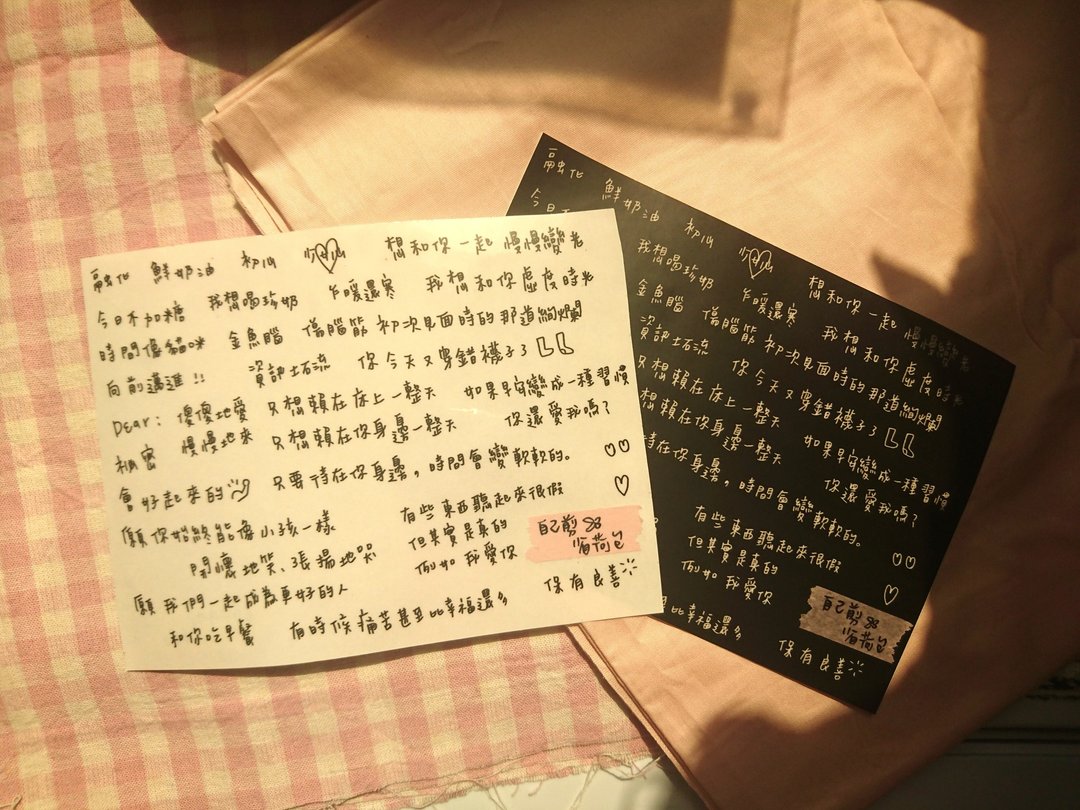 融化 鮮奶油 初心 想和你一起慢慢變老
今日不加糖 我想喝珍奶 乍暖還寒 我想和你虛度時光
時間傷貓咪 金魚腦 傷腦筋 初次見面時的那道絢爛
向前邁進!! 資訊土石流 你今天又穿錯襪子了
DEAR: 傻傻地愛 只想賴在床上一整天 如果早安變成一種習慣
秘密 慢慢地來 只想賴在你身邊一整天 你還愛我嗎?
會好起來的 只要待在你身邊,時間會變軟軟的。
願你始終能像小孩一樣 有些東西聽起來很假
開懷地笑、張揚地哭 但其實是真的
願我們一起成為更好的人 例如 我愛你
和你吃早餐 有時候痛苦甚至比幸福還多 保有良善
自己剪
省荷包
融化 鮮奶油 初心
今日不
想和你一起慢慢變老
我想喝珍奶 乍暖還寒 我想和你虛度時光
金魚腦 傷腦筋 初次見面時的那道絢爛
資訊土石流 你今天又穿錯襪子了
只想賴在床上一整天 如果早安變成一種習慣
想賴在你身邊一整天 你還愛我嗎?
待在你身邊,時間會變軟軟的。
有些東西聽起來很假
但其實是真的
例如 我愛你
比幸福還多 保有良善
自己剪
省荷包